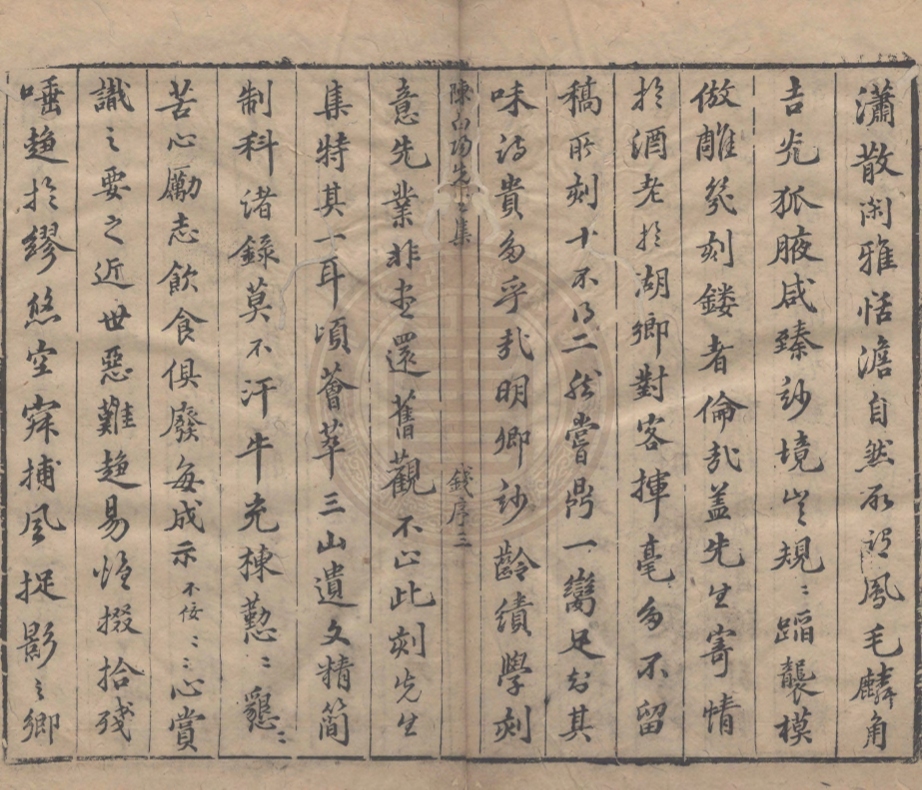 瀟散閑雅恬澹自然所謂鳳毛麟角
吉光狐腋咸臻妙境豈規〻蹈襲模
倣雕幾刻鏤者倫哉盖先生寄情
於酒老於湖鄉對客揮毫多不留
稿所刻十不得二然嘗鼎一臠足知其
味詩貴多乎哉明卿妙齡績學刻
陳白陽先生集 錢序三
意先業非直還舊觀不止此刻先生
集特其一耳頃薈萃三山遺文精簡
制科諸錄莫不汗牛充棟懃〻懇〻
苦心勵志飲食俱廢每成示不佞〻〻心賞
識之要之近世惡難趨易惟掇拾殘
唾趨於繆悠空寂捕風捉影之鄉